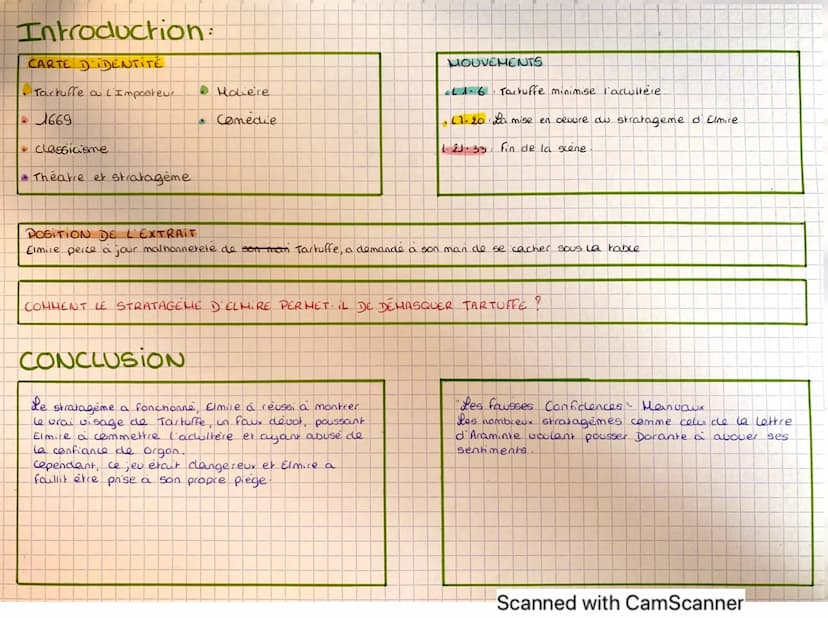 Introduction:
CARTE D'iDENTiTÉ
Tartuffe ou L'Imposteur
Molière
1669
Comédie
Classicisme
Théâtre et stratagème
MOUVEMENTS
L 1-6 : Tartuffe minimise l'adultère.
L7-20 : La mise en oeuvre du stratagème d'Elmire
L 21-33 : Fin de la scène.
POSITION DE L'EXTRAIT
Elmire perce à jour malhonneteté de son mari Tartuffe, a demandé à son mari de se cacher sous la table
COMMENT LE STRATAGÈME D'ELMIRE PERMET-iL DE DÉMASQUER TARTUFFE ?
CONCLUSiON
Le stratagème a fonctionné, Elmire à réussi à montrer
le vrai visage de Tartuffe, un faux dévot, poussant
Elmire à commettre l'adultère et ayant abusé de
la confiance de Orgon.
Cependant, ce jeu était dangereux et Elmire a
failli être prise à son propre piège.
"Les Fausses Confidences" Marivaux
Les nombreux stratagèmes comme celui de la lettre
d'Araminte voulant pousser Dorante à avouer ses
sentiments.
Scanned with CamScanner